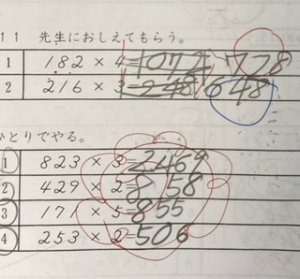 11 先生におしえてもらう。
1 182 × 4= 728
2 216 × 3= 648
ひとりでやる。
1 823 × 3=2469
2 429 × 2=858
3 171 × 5=855
4 253 × 2=506